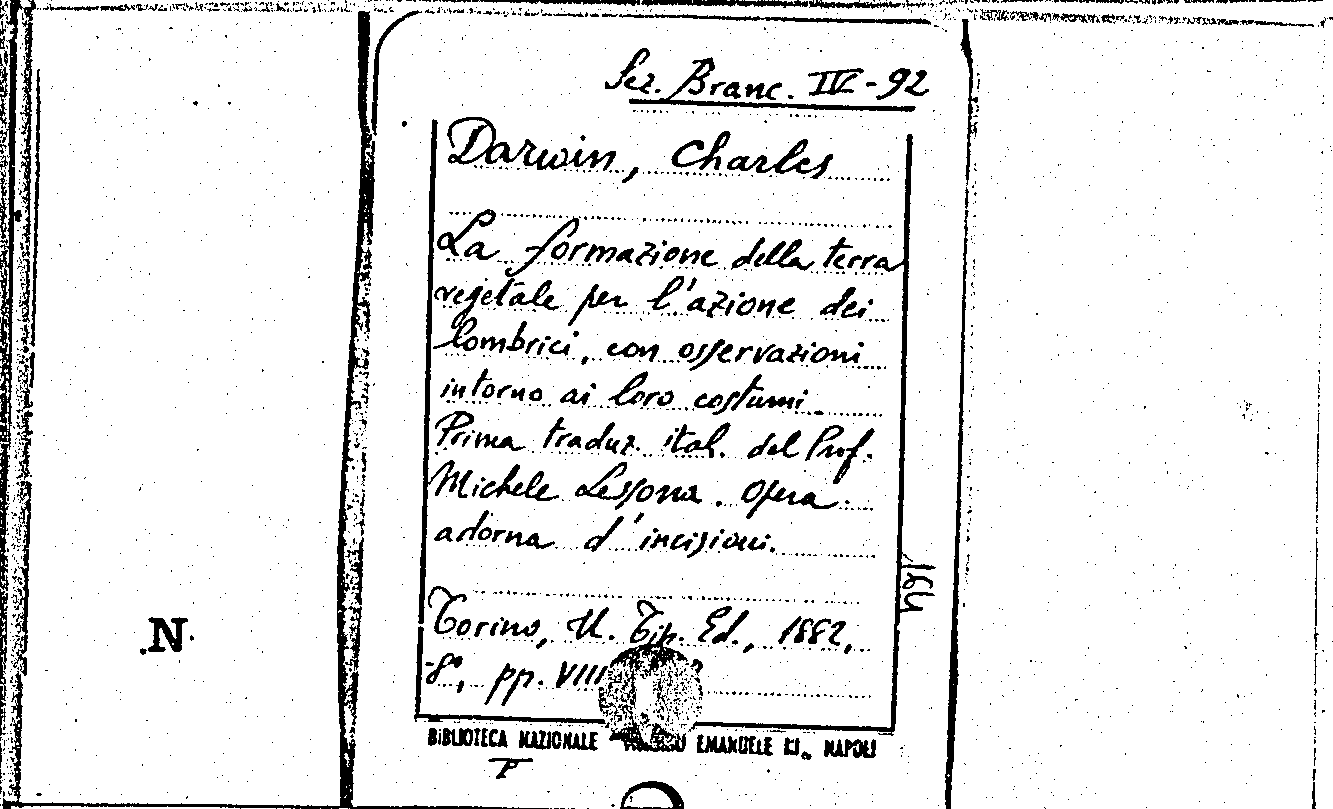 Sez. Branc. IV-92
Darwin, Charles
La formazione della terra
vegetale per l'azione dei
lombrici, con osservazioni
intorno ai loro costumi.
Prima traduz. ital. del Prof.
Michele Lessona. Opera
adorna d'incisioni.
Torino, U. Tip. Ed., 1882,
8°, pp. VIII
BIBLIOTECA NAZIONALE EMANUELE III, NAPOLI
N